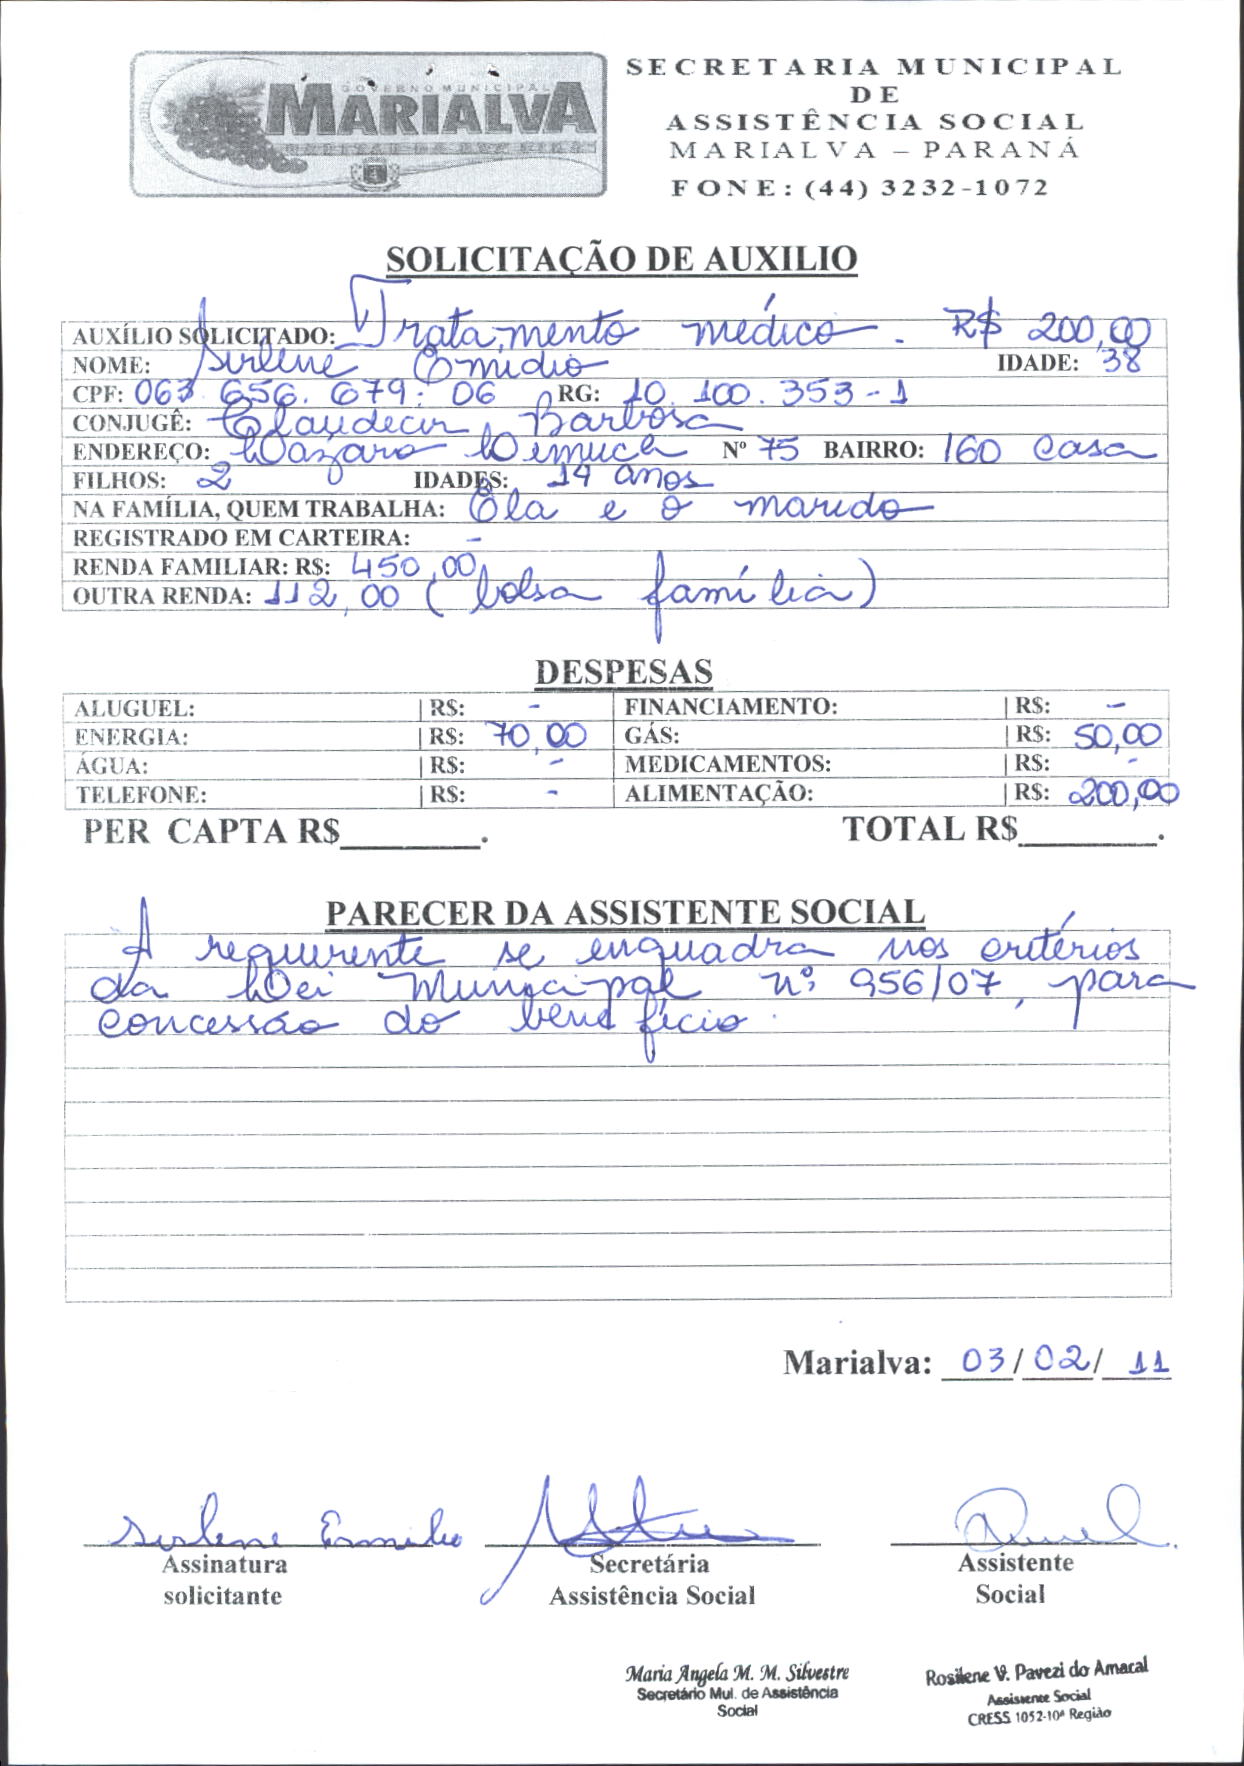 GOVERNO MUNICIPAL
MARIALVA
SECRETARIA MUNICIPAL
DE
ASSISTÊNCIA SOCIAL
MARIALVA – PARANÁ
FONE: (44) 3232-1072
SOLICITAÇÃO DE AUXILIO
AUXÍLIO SOLICITADO: Tratamento médico. R$ 200,00
NOME: Sirlene Emidio IDADE: 38
CPF: 063.656.679.06 RG: 10.100.353-1
CONJUGÊ: Claudecir Barbosa
ENDEREÇO: Lazaro Nº 75 BAIRRO: 160 casa
FILHOS: 2 IDADES: 14 anos
NA FAMÍLIA, QUEM TRABALHA: Ela e o marido
REGISTRADO EM CARTEIRA: -
RENDA FAMILIAR: R$: 450,00
OUTRA RENDA: 112,00 (bolsa família)
DESPESAS
ALUGUEL: R$: - FINANCIAMENTO: R$: -
ENERGIA: R$: 70,00 GÁS: R$: 50,00
ÁGUA: R$: - MEDICAMENTOS: R$: -
TELEFONE: R$: - ALIMENTAÇÃO: R$: 200,00
PER CAPTA R$________. TOTAL R$________.
PARECER DA ASSISTENTE SOCIAL
A requerente se enquadra nos critérios
da Lei Municipal nº 956/07, para
concessão do benefício.
Marialva: 03/02/11
Sirlene Emidio
Assinatura Secretária Assistente
solicitante Assistência Social Social
Maria Angela M. M. Silvestre Rosilene V. Pavezi do Amaral
Secretário Mul. de Assistência Assistente Social
Social CRESS 1052-10ª Região